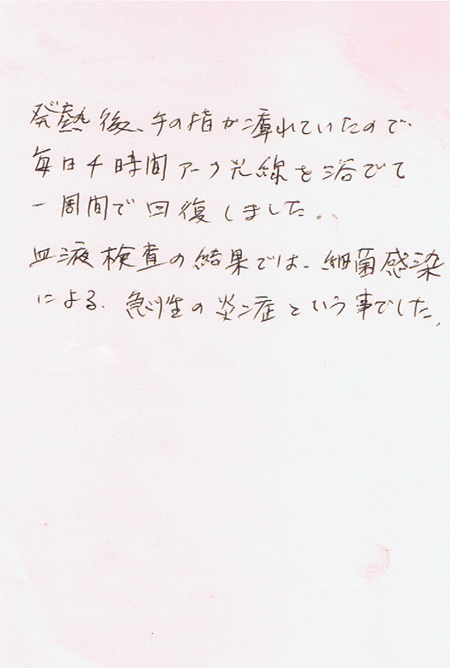 発熱後、手の指が痺れていたので
毎日4時間アーク光線を浴びて
一周間で回復しました。
血液検査の結果では、細菌感染
による、急性の炎症という事でした。